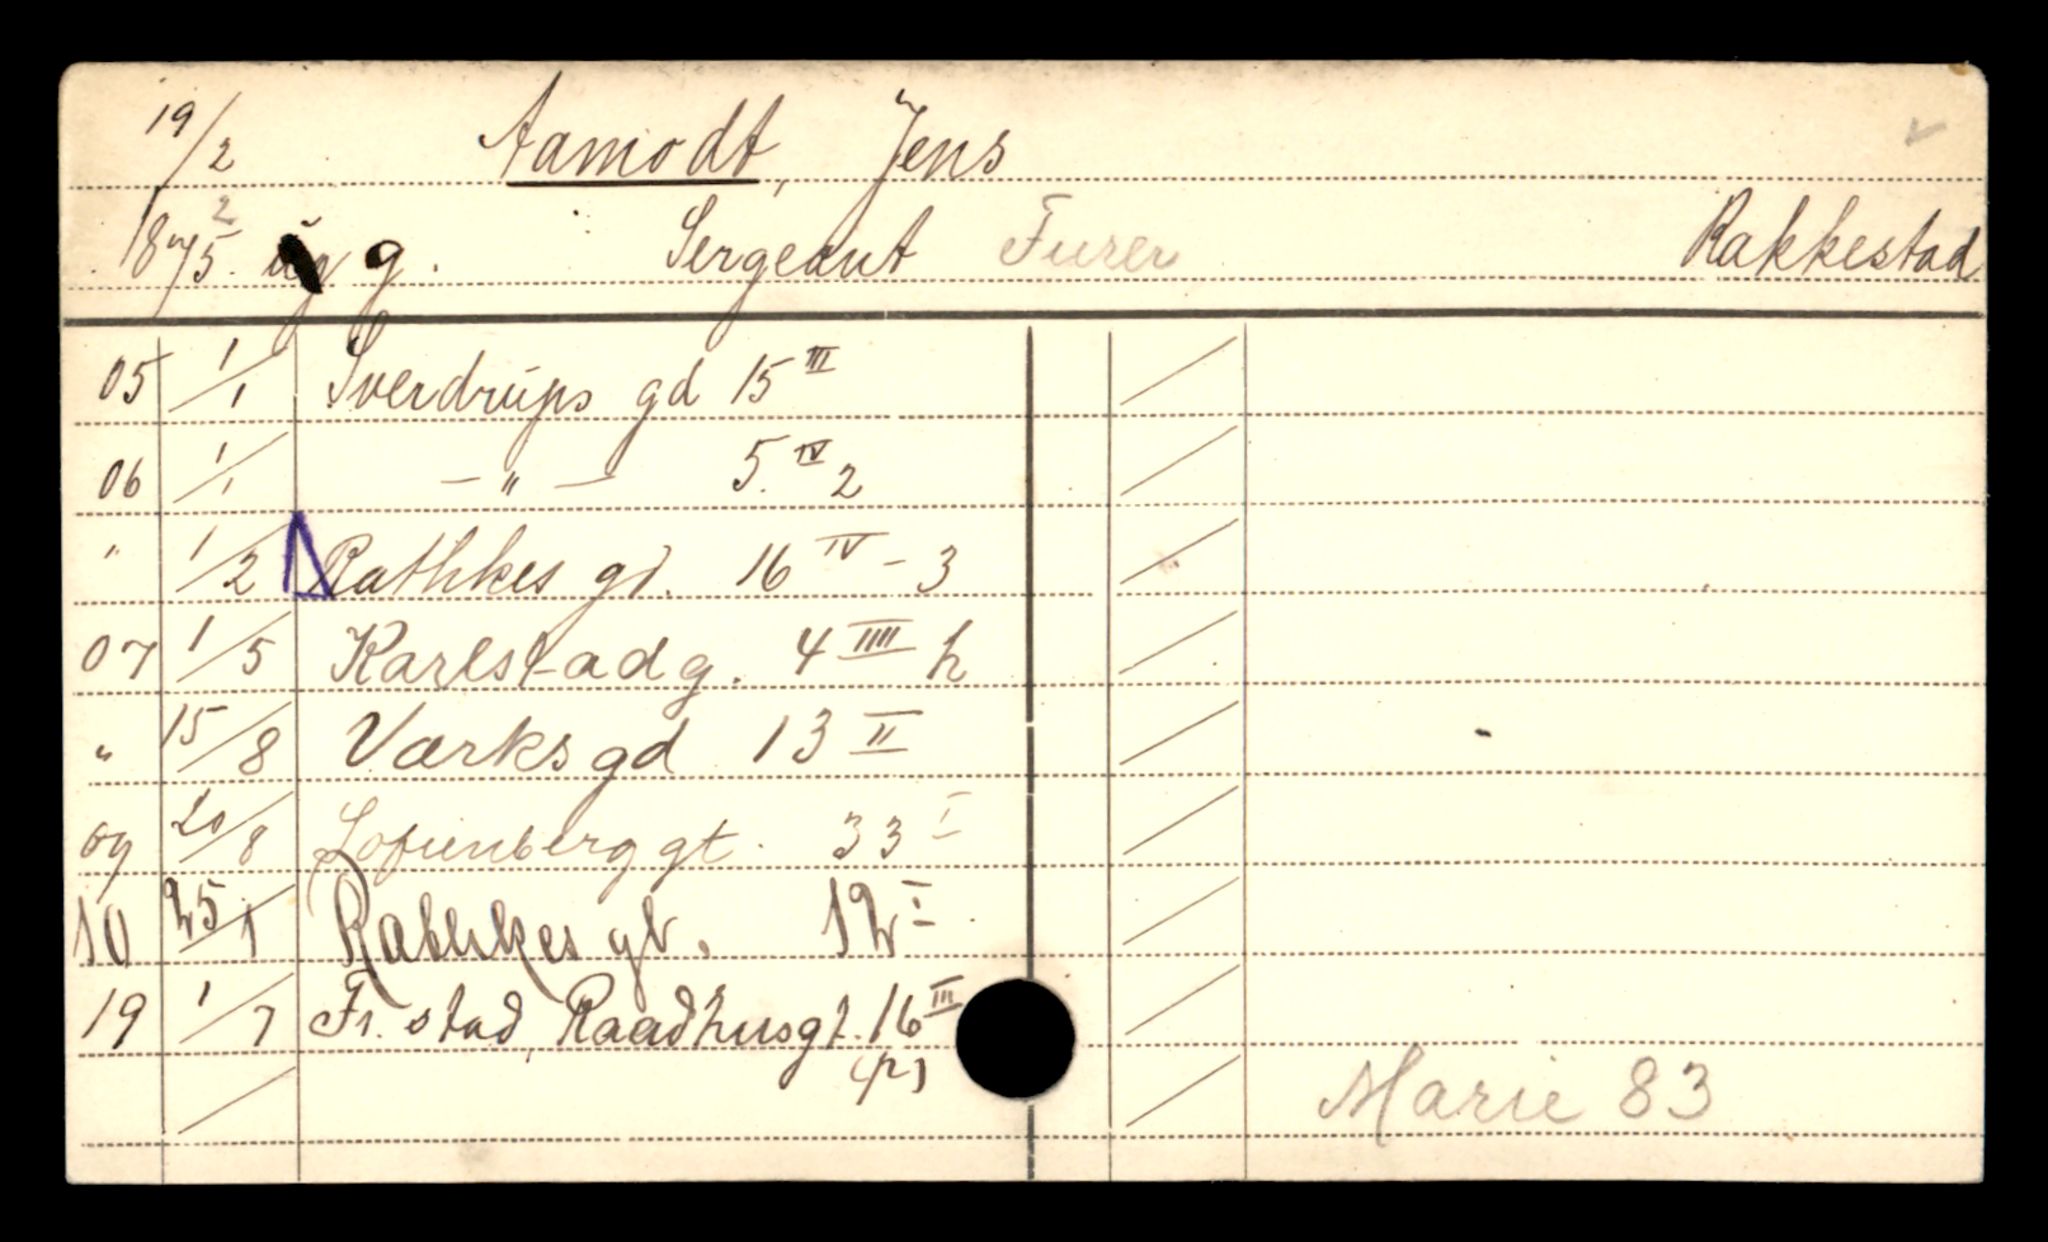 19/2 Aamodt, Jens
1875. 2 g. Sergeant Furer Rakkestad
05 1/1 Sverdrups gd 15 III
06 1/1 — " — 5. IV 2
" 1/2 Rathkes gd. 16 IV - 3
07 1/5 Karlstadg. 4 IIII h
" 15/8 Værksgd 13 II
09 20/8 Sofienberggt. 33 I
10 25/1 Rathkes gt. 12 I
19 1/7 Fr. stad, Raadhusgt. 16 III
(p)
Marie 83